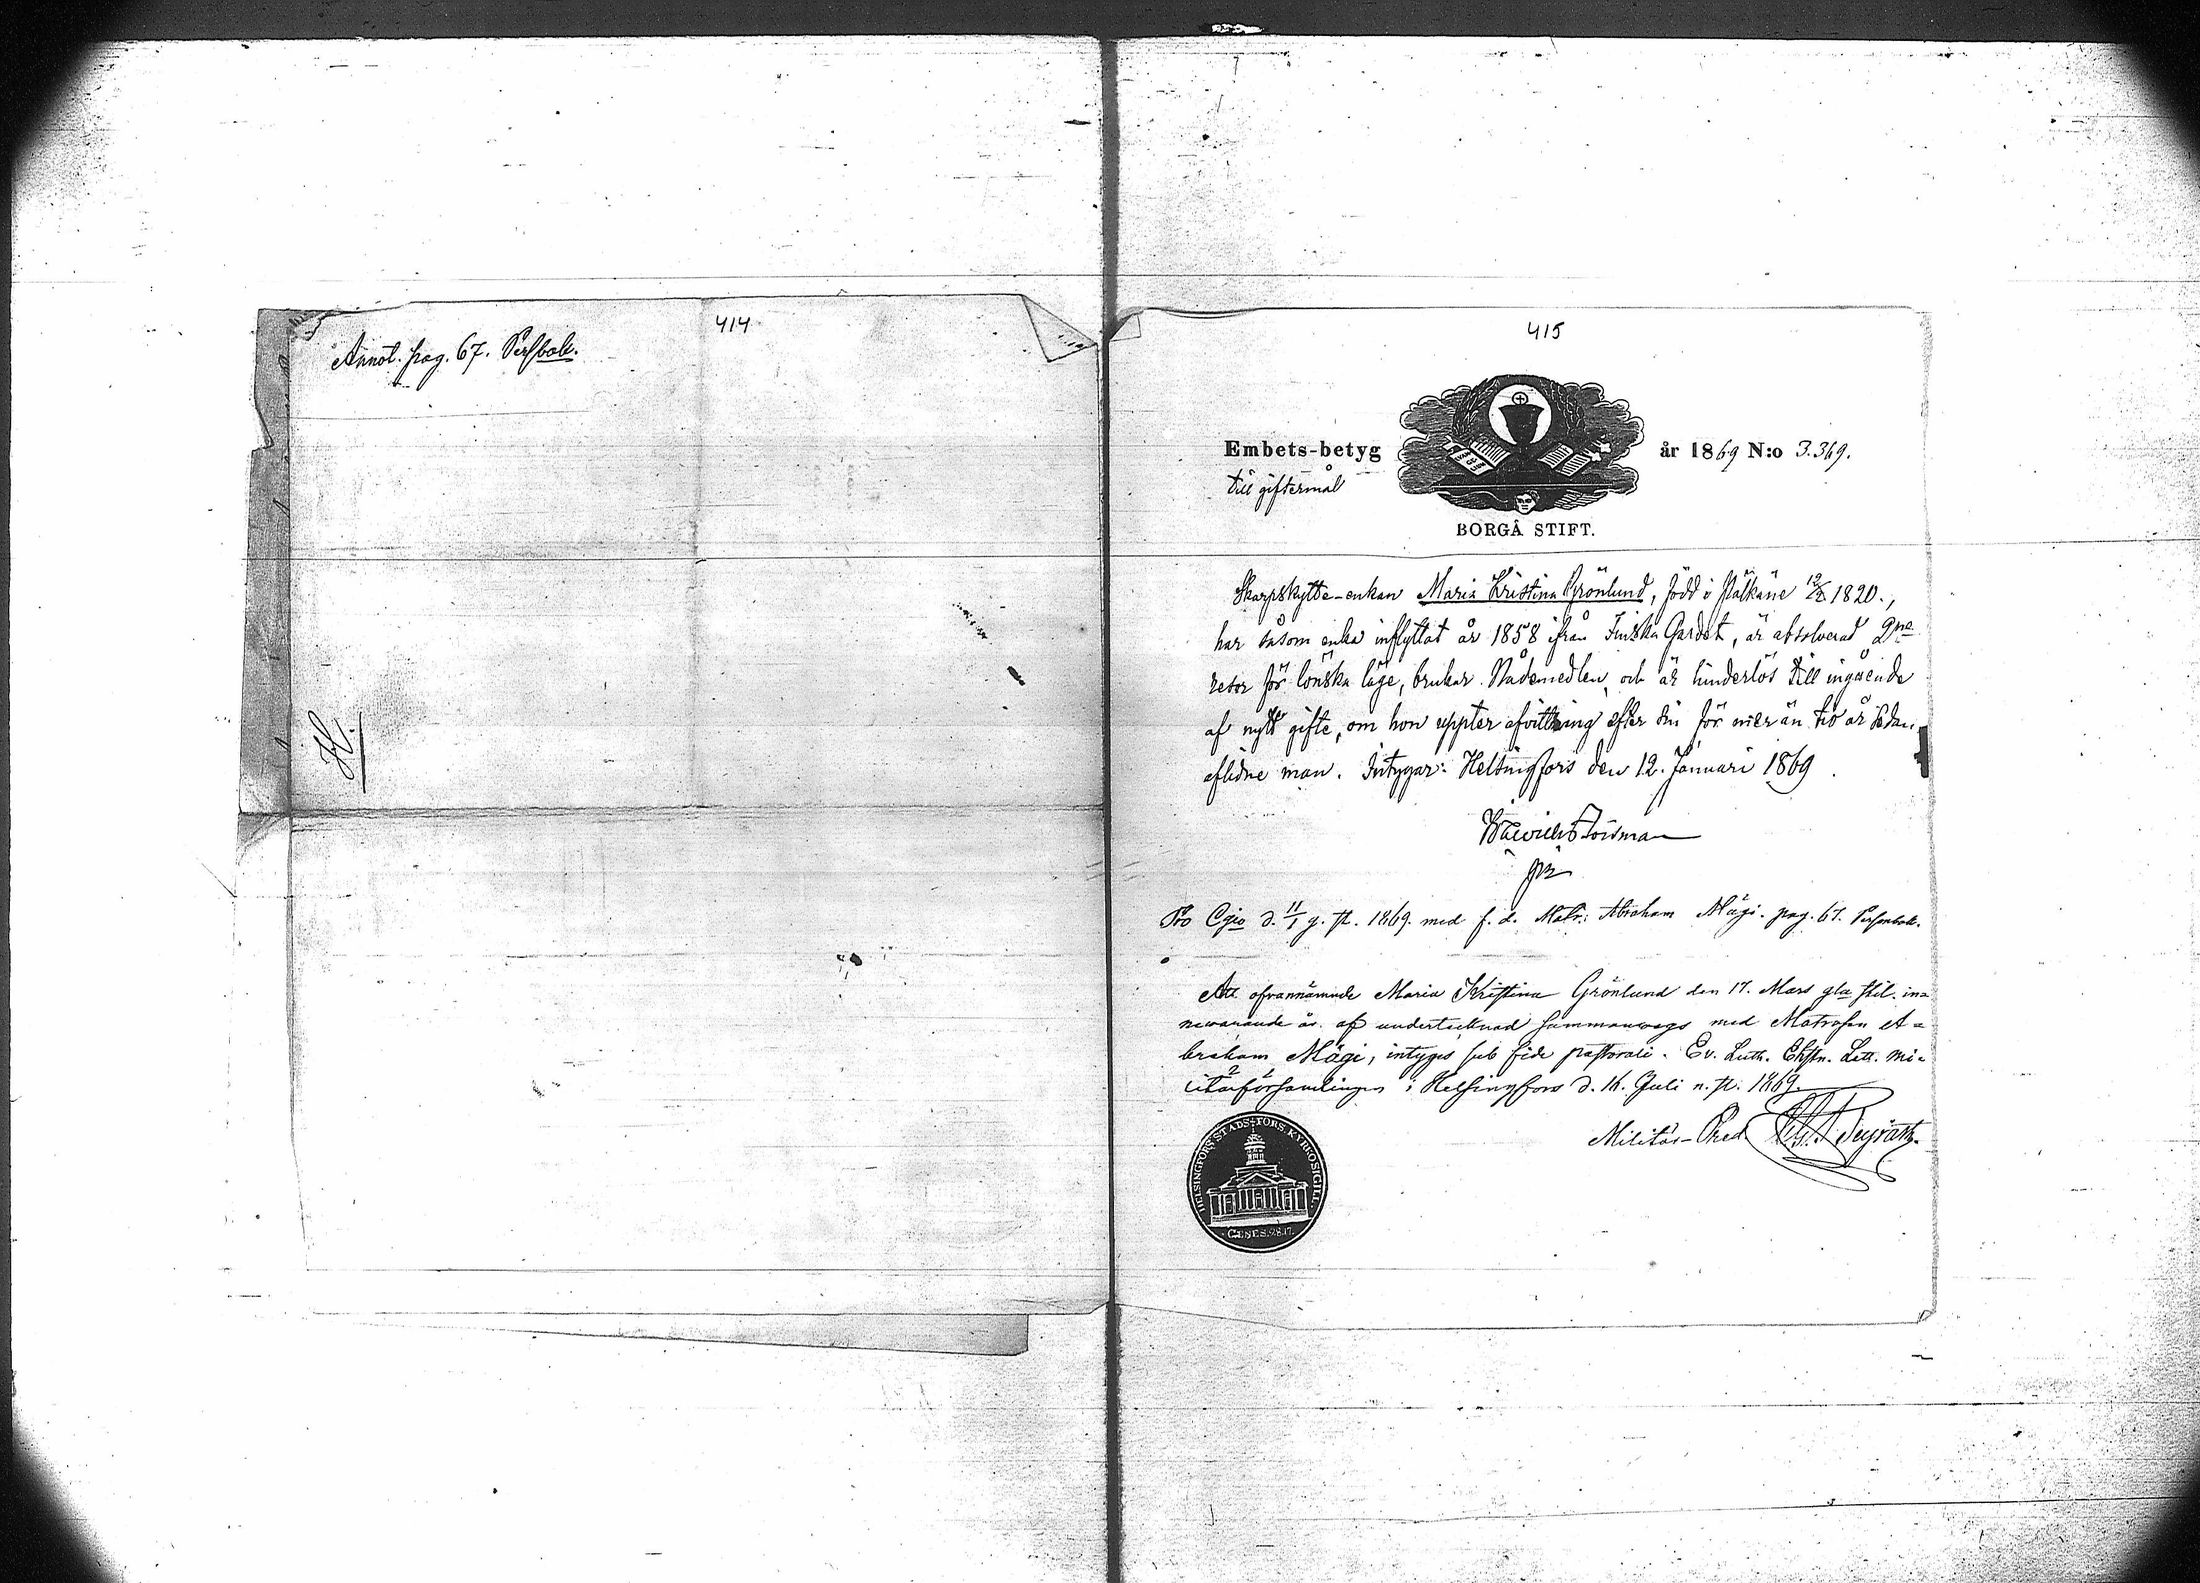 414
Annot. pag. 67. Persbok.
H.
415
Embets-betyg år 1869 N:o 3.369.
till giftermål
BORGÅ STIFT.
Skarpskytte-enkan Maria Kristina Grönlund, född i Pälkäne 1820.,
har såsom enka inflyttat år 1858 ifrån Finska Gardet, är absolverad 2ne
resor för lönska läge, brukar Nådemedlen, och är hinderlös till ingående
af nytt gifte, om hon uppter afvittring efter sin för mer än tio år sedan
aflidne man. Intygar: Helsingfors den 12. Januari 1869
Forsman
Pro Cgio d. 11/1 g. st. 1869. med f. d. Matr: Abraham Mägi. pag. 67. Personbok.
Att ofvannämnde Maria Kristina Grönlund den 17. Mars gla stil. in=
newarande år. af undertecknad sammanwigs med Matrosen A=
braham Mägi, intygas sub fide pastorali. Ev. Luth. Ehstn. Lett. Mi=
litärförsamlingen i Helsingfors d. 16. Juli n. st. 1869.
Militär-Pred.
HELSINGFORS STADS-FÖRS. KYRKOSIGILL.